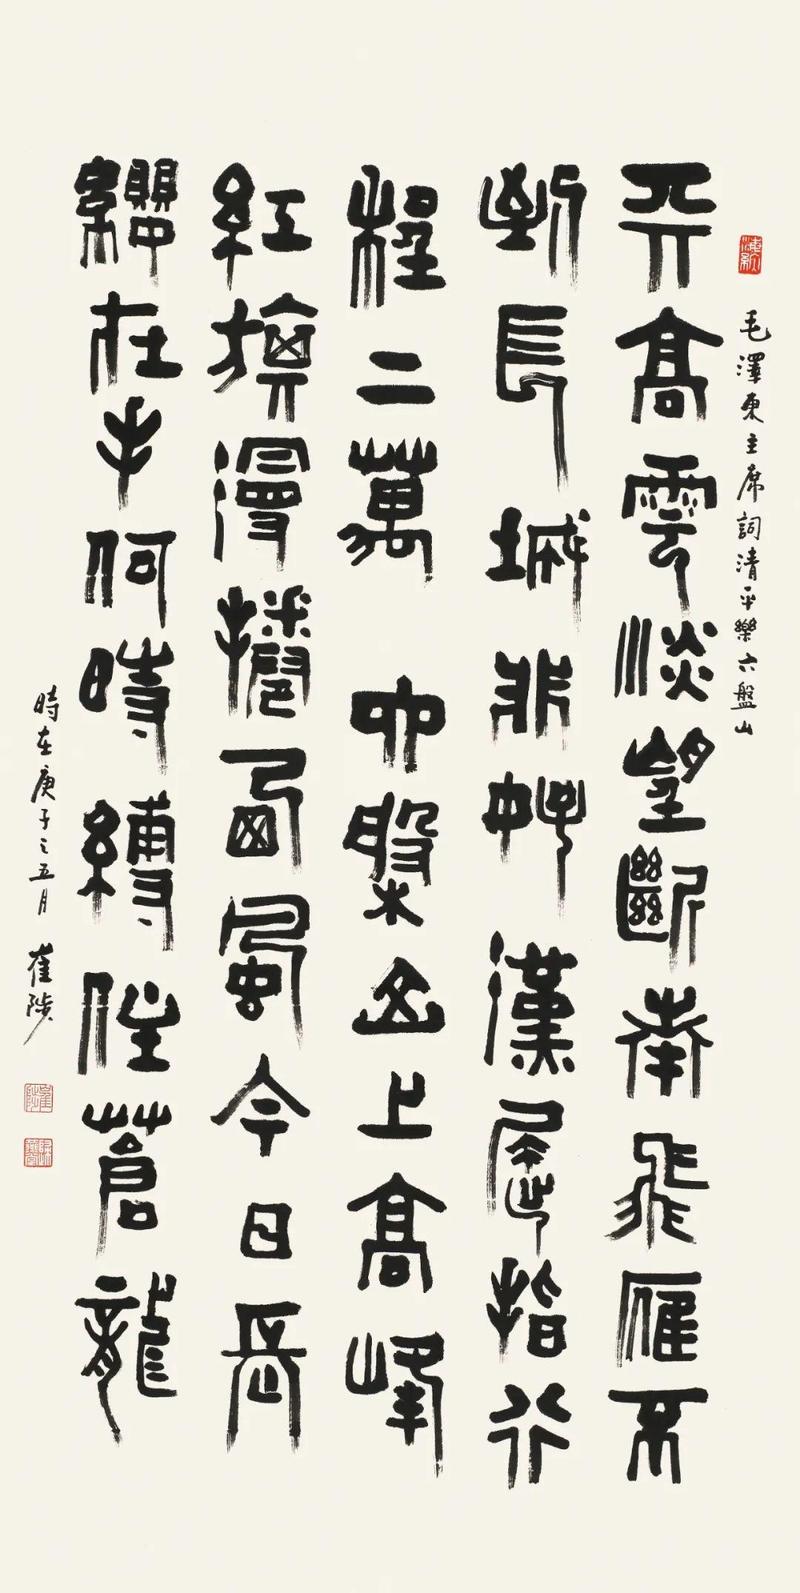 毛澤東主席詞清平樂六盤山
天高雲淡望斷南飛雁不
到長城非好漢屈指行
程二萬 六槃山上高峰
紅旗漫捲西風今日長
纓在手何時縛住蒼龍
時在庚子之五月 崔陟